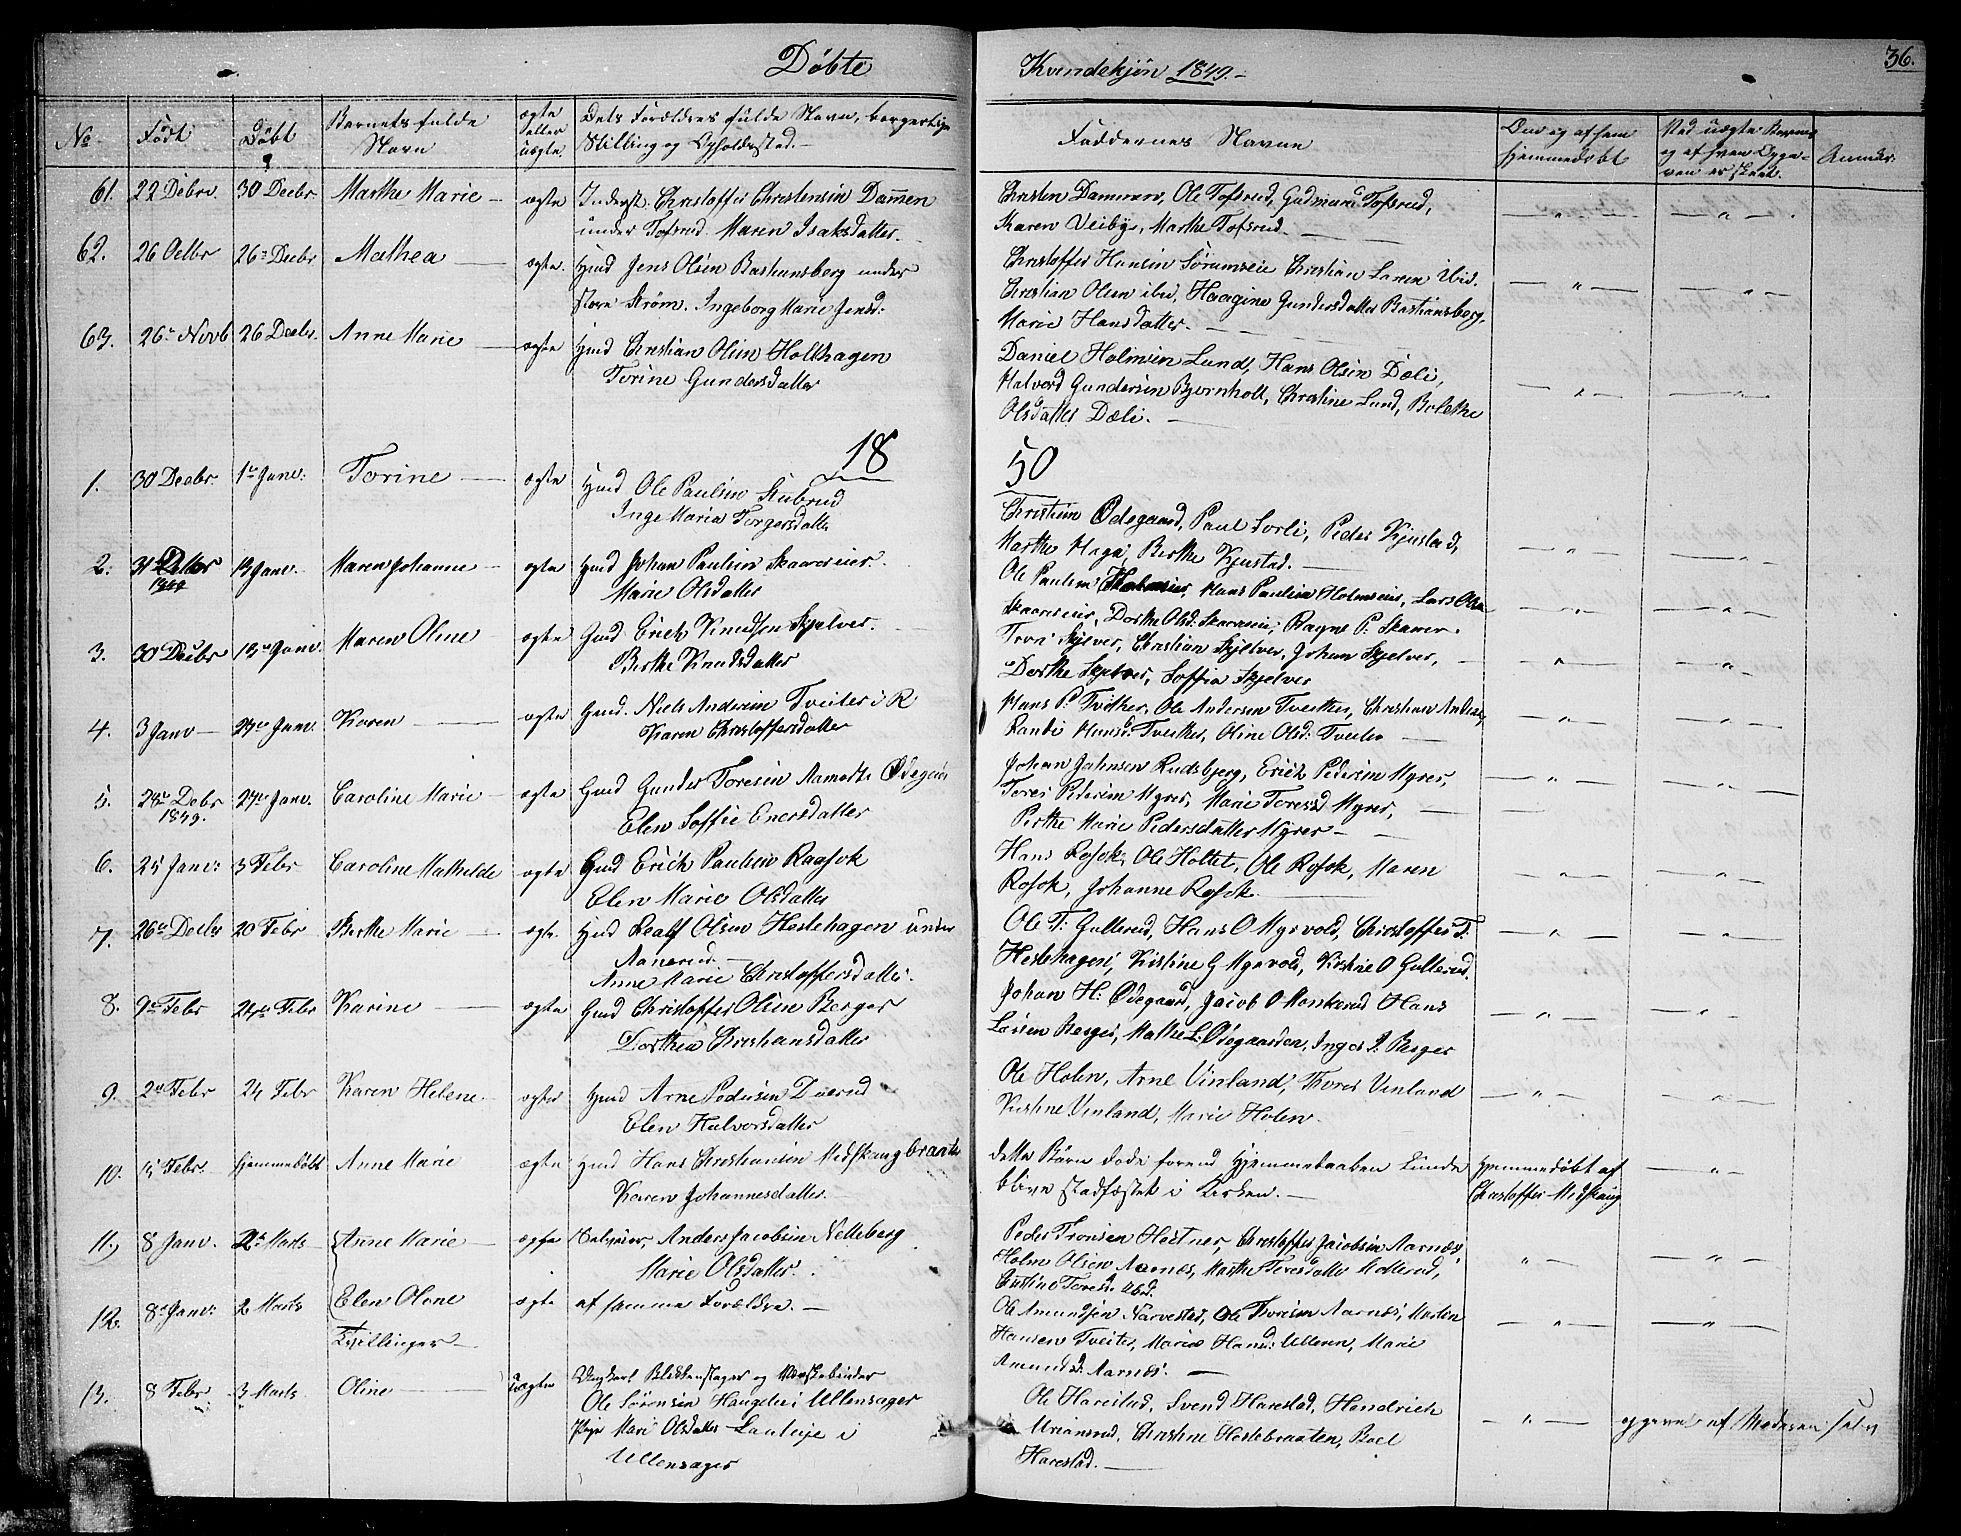 Döbte
Kvindekjön 1849.-
36.
No Födt Döbt Barnets fulde Navn ægte eller uægte. Dets Forældres fulde Navn, borgerlige Stilling og Opholdssted.-
Faddernes Navne Om og af hvem hjemmedöbt Ved uægte Børn og af hvem Opgaven er skeet. Anmkr.
61. 22 Debr 30 Decbr Marthe Marie - ægte Inderst. Christoffer Christensen Dammen
under Tofsrud Maren Isaksdatter.
Christen Dammen, Ole Tofsrud, Gudmund Tofsrud,
Karen Veibye, Marthe Tofsrud.
62. 26 26 Decbr Mathea ægte. Hmd Jens Olsen Bastiansberg under
Ström. Ingeborg Marie Jensd:
Christoffer Hansen Sörumseie Christian Larsen ibid.
Christian Olsen ibid, Haagine Gundersdatter Bastiansberg,
Marie Hansdatter.
63. 26 Novb 26 Decbr. Anne Marie ægte Hmd Christian Olsen Holthagen
Torine Gundersdatter
Daniel Holmsen Lund, Hans Olsen Dæli,
Halvord Gundersen Bjornholt, Christine Lund, Bolethe
Olsdatter Dæli.
18 50
1. 30 Decbr. 1ste Janv: Torine ægte Hmd Ole Paulsen Stubrud
Inge Maria Torgersdatter
Christian Ödegaard, Paul Sorli, Peder Kjustad,
Marthe Haga, Berthe Kjustad.
2. 31 1849 13 Janv. Maren Johanne ægte Hmd Johan Paulsen Skaarerseier.
Marie Olsdatter
Ole Paulsen Holmseie, Hans Paulsen Holmseie, Lars Olsen
Dorthe Olsd: Ragne P:
3. 30 Decbr 13 Janv. Maren Oline ægte Gmd Erich Knudsen Skjelver.
Berthe Knudsdatter
Skjelver, Christian Skjelver, Johan Skjelver,
Dorthe Skjelver, Soffia Skjelver
4. 3 Janv Janv. Karen ægte Gmd. Niels Andersen Tveiter i R
Karen Christoffersdatter
Hans P. Tveiter, Ole Andersen Tveiter, Christian Anders.
Randi Hansd: Tveiter, Oline Olsd: Tveiter
5. Debr 1849. 27 Janv. Caroline Marie ægte Gmd Gunder Toresen Aamodt Ödegaard
Elen Soffie Enersdatter
Johan Johnsen Rudsbjerg, Erich Pedersen Myrer,
Tores Pedersen Myrer, Marie Toresd Myrer,
Berthe Marie Pedersdatter Myrer
6. 25 Janv: 3 Febr Caroline Mathilde ægte Gmd Erich Paulsen Raasok
Elen Marie Olsdatter
Hans Rosok, Ole Holtet, Ole Rosok, Maren
Rosok, Johanne Rosok
7. 26 Decbr 20 Febr Berthe Marie ægte. Hmd Olsen Hestehagen under
Aanerud.
Anne Marie Christoffersdatter.
Ole T: Gullerud, Hans O Myrvold, Christoffer T.
Hestehagen, Kirstine G Myrvold, Kirstine O Gullerud.
8. 9 Febr 24 Febr Karine ægte Gmd Christoffer Olsen Berger
Dorthea Christiansdatter
Johan H: Ödegaard, Jacob O Monkerud Hans
Larsen Berger, Mathe L: Ödegaarden, Inger P. Berger
9. 2 Febr 24 Febr Karen Helene ægte Hmd Arne Pedersen Duerud
Elen Halvorsdatter
Ole Holen, Arne Vinland, Thores Vinland
Kirstine Vinland, Marie Holen.
10. 15 Febr. Hjemmedöbt Anne Marie ægte Hmd Hans Christiansen Midskaugbraaten
Karen Johannesdatter.
dette Barn döde forend Hjemmedaaben kunde
blive stadfæstet i Kirken.
Hjemmedöbt af
Christoffer Midskaug
11. 8 Janv. 2 Marts Anne Marie ægte Selveier, Anders Jacobsen Nelleberg
Marie Olsdatter.
Peder Tronsen Hestner, Christoffer Jacobsen Aarnæs
Holm Olsen Aarnæs, Marthe Toresdatter Mollerud,
Christine Toresd. ibid.
12. 8 Janv: 2 Marts Elen Olene ægte af samme Forældre.
Tvillinger
Ole Amundsen Narvestad, Ole Thoresen Aarnæs, Morten
Hansen Tveiter, Maria Hansd: Ulleren, Marie
Amundsd. Aarnæs.
13. 8 Febr 3 Marts Oline Uægte Ungkarl Blikkenslager og Børstebinder
Ole Sörensen Haugeli i Ullensager
Pige Mari Olsdatter i
Ullensager
Ole Harestad, Svend Harestad, Hendrich
Christine Hestebraaten, Boel
Harestad.
opgivet af Moderen selv